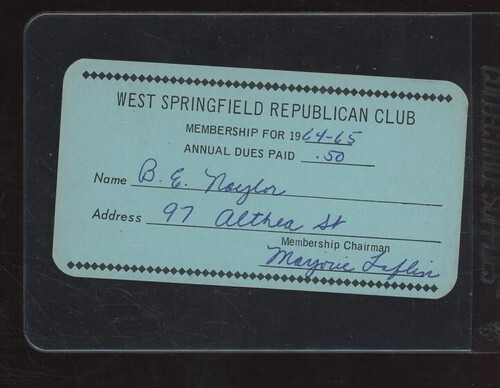 WEST SPRINGFIELD REPUBLICAN CLUB
MEMBERSHIP FOR 1964-65
ANNUAL DUES PAID .50
Name B. E. Naylor
Address 97 Althea St
Membership Chairman
Marjorie Laflin